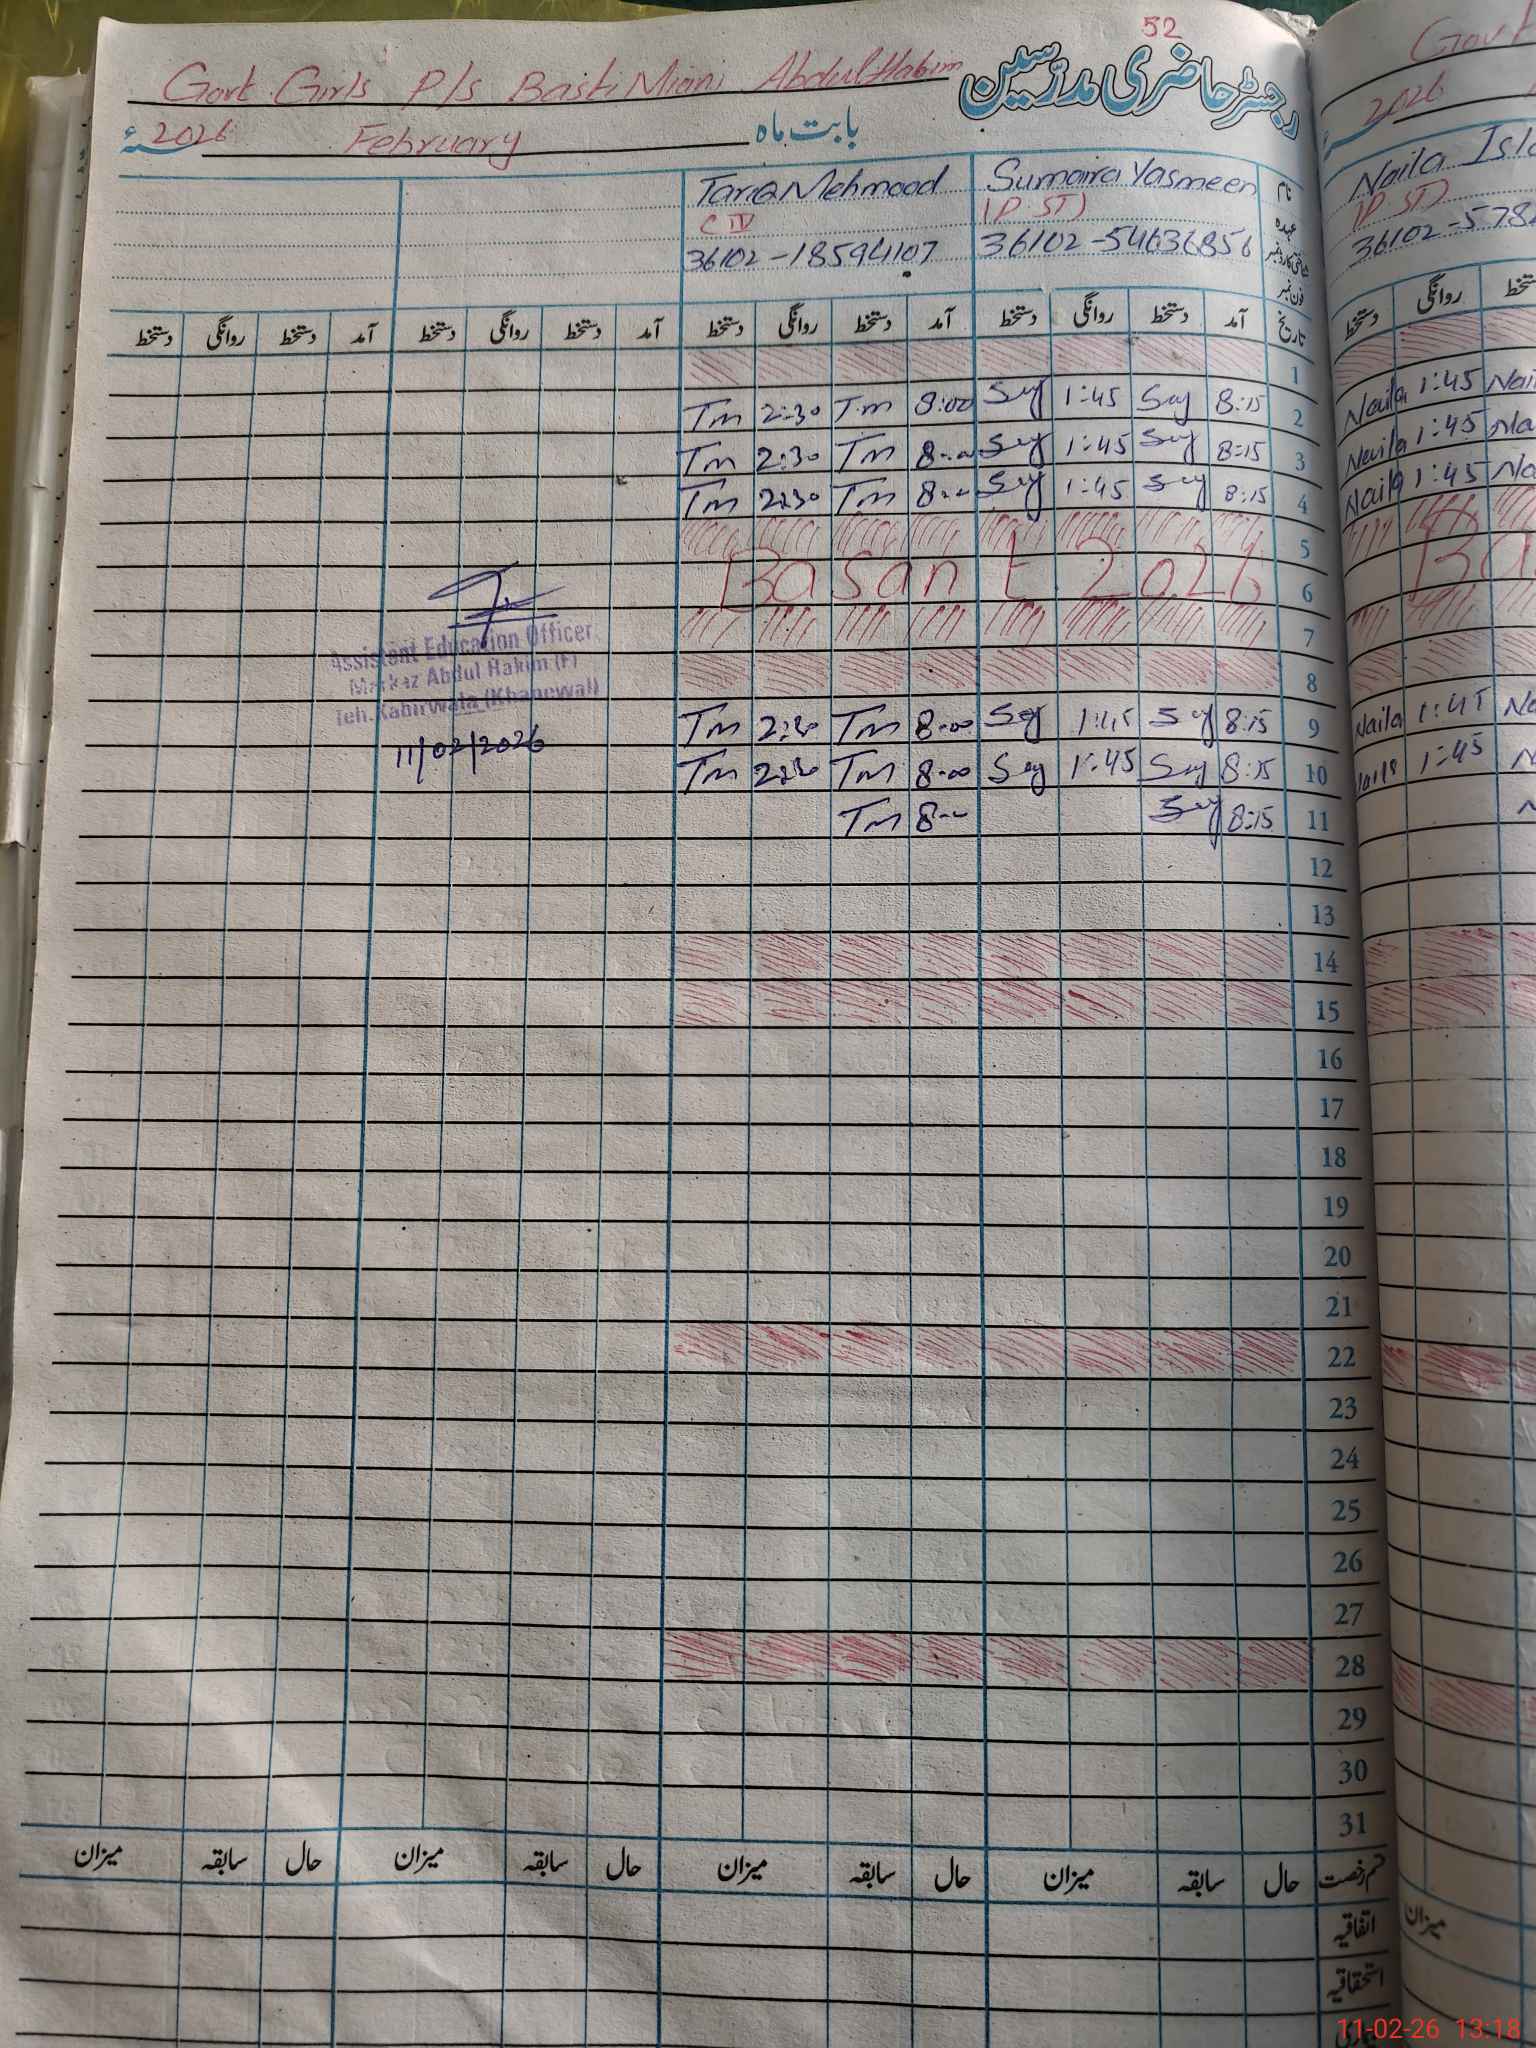 52
رجسٹر حاضری مدرّسین
Govt Girls P/s Basti Miani Abdul Hakim
بابت ماہ February 2026 سنہء
نام Sumaira Yasmeen Tariq Mehmood
عہدہ (P ST) C IV
شناختی کارڈ نمبر 36102-54636856 36102-18594107
فون نمبر
تاریخ آمد دستخط روانگی دستخط آمد دستخط روانگی دستخط آمد دستخط روانگی دستخط آمد دستخط روانگی دستخط
1
2 8:15 Say 1:45 Say 8:00 Tm 2:30 Tm
3 8:15 Say 1:45 Say 8:00 Tm 2:30 Tm
4 8:15 Say 1:45 Say 8:00 Tm 2:30 Tm
5
6 Basant 2026
7
8
9 8:15 Say 1:45 Say 8:00 Tm 2:30 Tm
10 8:15 Say 1:45 Say 8:00 Tm 2:30 Tm
11 8:15 Say 8:00 Tm
Assistant Education Officer
Markaz Abdul Hakim (F)
Teh. Kabirwala (Khanewal)
11/02/2026
12
13
14
15
16
17
18
19
20
21
22
23
24
25
26
27
28
29
30
31
قسم رخصت حال سابقہ میزان حال سابقہ میزان حال سابقہ میزان حال سابقہ میزان
اتفاقیہ
استحقاقیہ
2026
Naila
(P ST)
روانگی دستخط
Naila 1:45
Naila 1:45
Naila 1:45
Naila 1:45
1:45
میزان
11-02-26 13:18